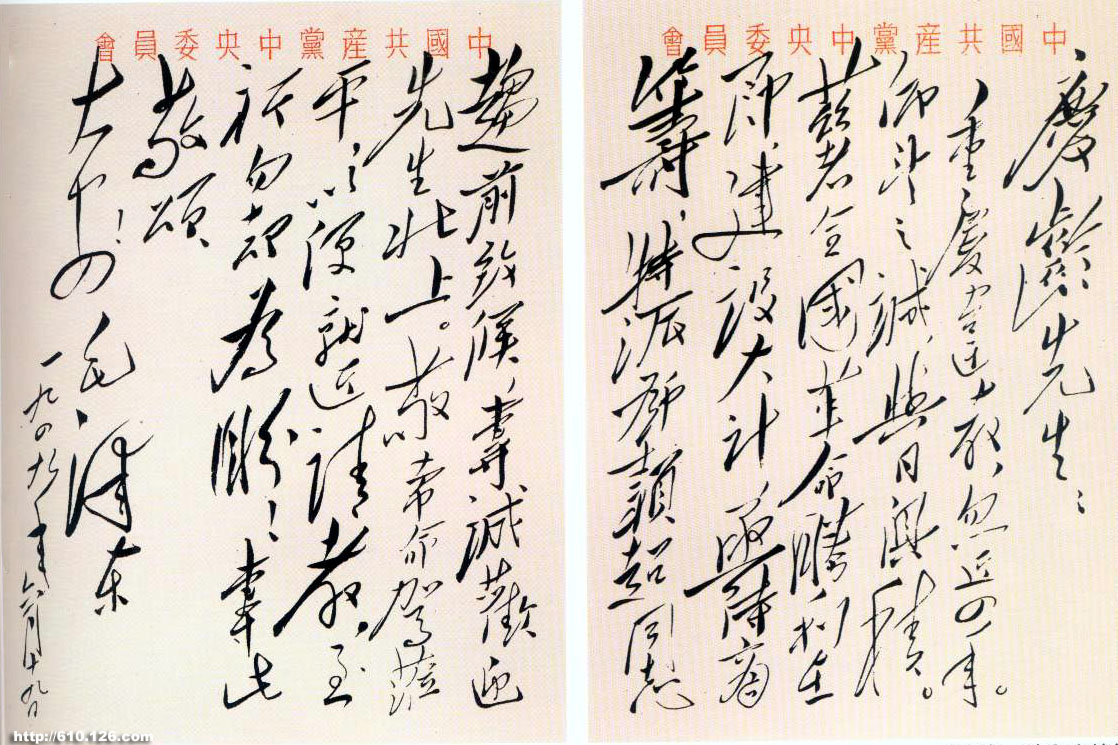 中國共産黨中央委員會
慶齡先生：
重慶違教，忽近四年。
仰望之誠，與日俱積。
茲者全國革命勝利在
即，建設大計，亟待商
籌，特派鄧穎超同志
中國共産黨中央委員會
趨前致候，專誠歡迎
先生北上。敬希命駕蒞
平，以便就近請教，至
祈勿却為盼！專此
敬頌
大安！
毛澤東
一九四九年六月十九日
http://610.126.com